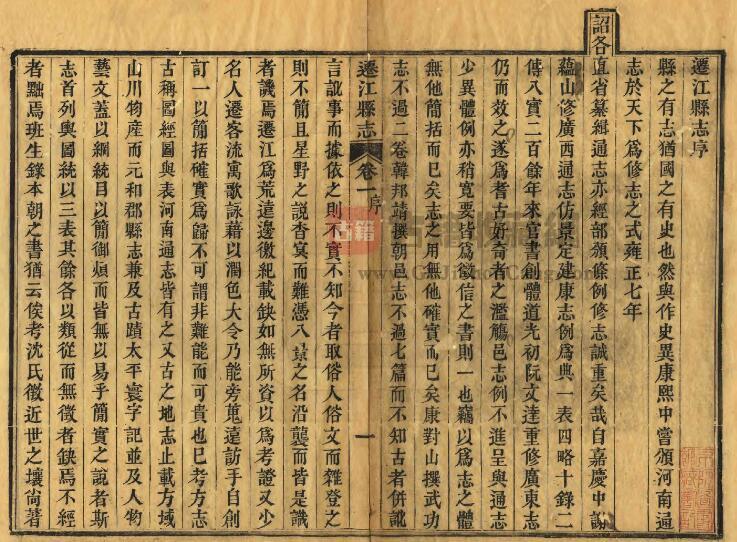 遷江縣志序
縣之有志猶國之有史也然與作史異康熙中嘗頒河南通
志於天下爲修志之式雍正七年
詔各直省纂緝通志亦經部頒條例修志誠重矣哉自嘉慶中謝
蘊山修廣西通志仿景定建康志例爲典一表四略十錄二
傳八實二百餘年來官書創體道光初阮文達重修廣東志
仍而效之遂爲者古好奇者之濫觴邑志例不進呈與通志
少異體例亦稍寬要皆爲徵信之書則一也竊以爲志之體
無他簡括而已矣志之用無他確實而已矣康對山撰武功
志不過二卷韓邦靖撰朝邑志不過七篇而不知古者併訛
遷江縣志 卷一 序 一
言訛事而據依之則不實不知今者取俗人俗文而雜登之
則不簡且星野之說杳冥而難憑八景之名沿襲而皆是識
者譏焉遷江爲荒遠邊徼紀載缺如無所資以爲考證又少
名人遷客流寓歌詠藉以潤色大令乃能旁蒐遠訪手自創
訂一以簡括確實爲歸不可謂非難能而可貴也已考方志
古稱圖經圖與表河南通志皆有之又古之地志止載方域
山川物產而元和郡縣志兼及古蹟太平寰宇記並及人物
藝文蓋以綱統目以簡御煩而皆無以易乎簡實之說者斯
志首列輿圖統以三表其餘各以類從而無徵者缺焉不經
者黜焉班生錄本朝之書猶云俟考沈氏徵近世之壤尙著
古籍
www.GuJiShouCang.com